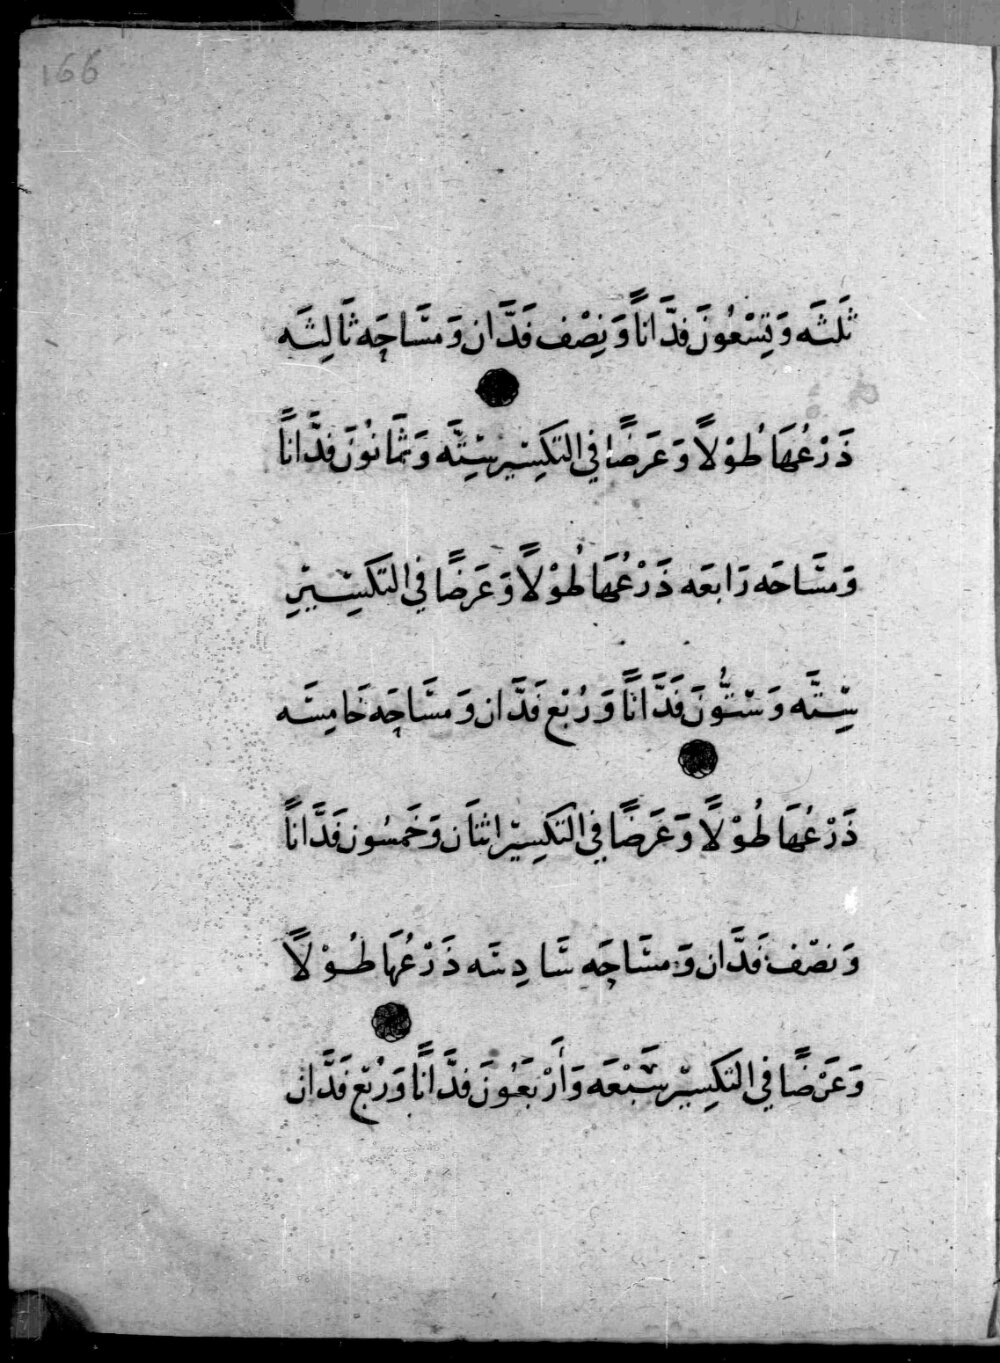 166
ثَلَثَه وَتِسْعُونَ فدَّاناً وَنِصْف فَدَّان وَمسَّاحَه ثَالِثَه
ذَرْعُهَا طُوْلاً وَعَرَضًا في التكسِيْر سِتَّه وَثَمَانُونَ فدَّاناً
وَمسَّاحَه رَابعَه ذَرْعُهَا طُوْلاً وَعَرَضًا في التكسِيْرِ
سِتَّه وَستُّونَ فَدَّاناً وَرُبْع فَدَّان وَمسَّاحَه خَامِسَه
ذَرْعُهَا طُوْلاً وَعَرَضًا في التكسِيْر اثنَان وَخَمسُون فَدَّاناً
وَنصْف فَدَّان وَمسَّاحَه سَادِسَه ذَرْعُهَا طُوْلاً
وَعَرْضًا في التكسِيْر سَبْعَه وَأَرْبَعُونَ فدَّاناً وَرُبْع فَدَّان